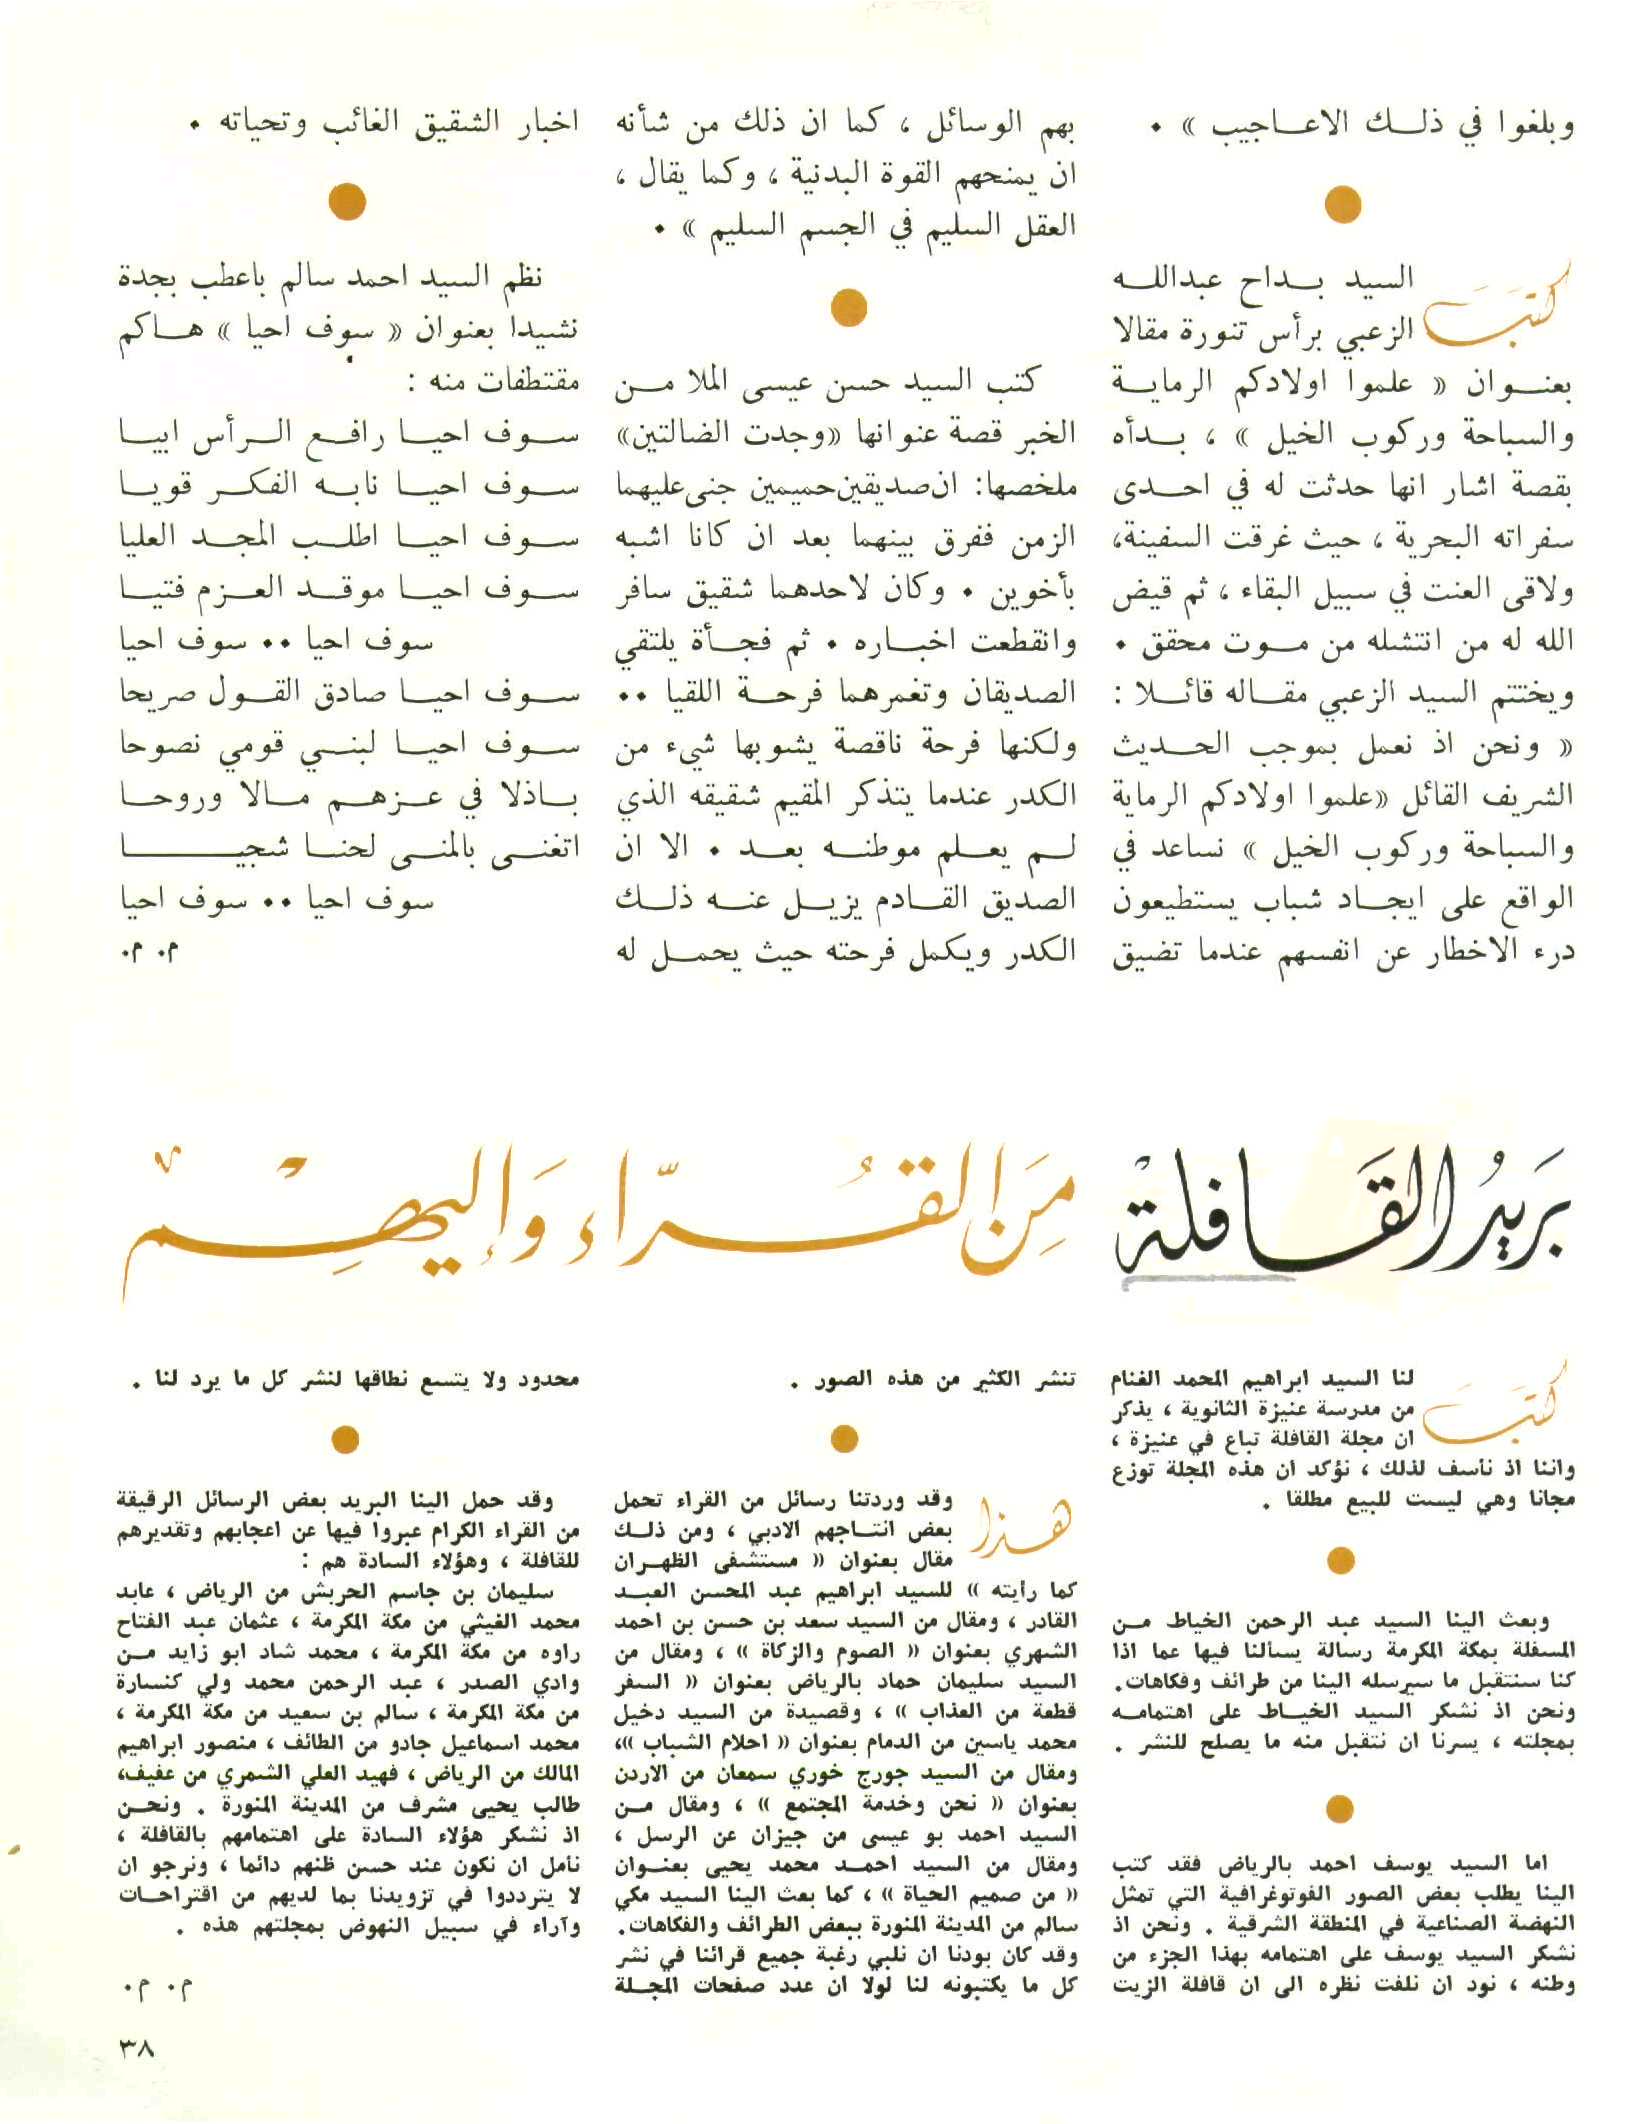 وبلغوا في ذلك الاعاجيب » .
كتب السيد بداح عبدالله
الزعبي برأس تنورة مقالا
بعنوان « علموا اولادكم الرماية
والسباحة وركوب الخيل » ، بدأه
بقصة اشار انها حدثت له في احدى
سفراته البحرية ، حيث غرقت السفينة،
ولاقى العنت في سبيل البقاء ، ثم قيض
الله له من انتشله من موت محقق .
ويختتم السيد الزعبي مقاله قائلا :
« ونحن اذ نعمل بموجب الحديث
الشريف القائل «علموا اولادكم الرماية
والسباحة وركوب الخيل » نساعد في
الواقع على ايجاد شباب يستطيعون
درء الاخطار عن انفسهم عندما تضيق
بهم الوسائل ، كما ان ذلك من شأنه
ان يمنحهم القوة البدنية ، وكما يقال ،
العقل السليم في الجسم السليم » .
كتب السيد حسن عيسى الملا من
الخبر قصة عنوانها «وجدت الضالتين»
ملخصها: ان صديقين حميمين جنى عليهما
الزمن ففرق بينهما بعد ان كانا اشبه
بأخوين . وكان لاحدهما شقيق سافر
وانقطعت اخباره . ثم فجأة يلتقي
الصديقان وتغمرهما فرحة اللقيا ..
ولكنها فرحة ناقصة يشوبها شيء من
الكدر عندما يتذكر المقيم شقيقه الذي
لم يعلم موطنه بعد . الا ان
الصديق القادم يزيل عنه ذلك
الكدر ويكمل فرحته حيث يحمل له
اخبار الشقيق الغائب وتحياته .
نظم السيد احمد سالم باعطب بجدة
نشيدا بعنوان « سوف احيا » هاكم
مقتطفات منه :
سوف احيا رافع الرأس ابيا
سوف احيا نابه الفكر قويا
سوف احيا اطلب المجد العليا
سوف احيا موقد العزم فتيا
سوف احيا .. سوف احيا
سوف احيا صادق القول صريحا
سوف احيا لبني قومي نصوحا
باذلا في عزهم مالا وروحا
اتغنى بالمنى لحنا شجيا
سوف احيا .. سوف احيا
م. م.
بَريدُ القَافلة مِنَ القُرّاء وَاليهِمْ
كتب لنا السيد ابراهيم المحمد الغنام
من مدرسة عنيزة الثانوية ، يذكر
ان مجلة القافلة تباع في عنيزة ،
واننا اذ نأسف لذلك ، نؤكد ان هذه المجلة توزع
مجانا وهي ليست للبيع مطلقا .
وبعث الينا السيد عبد الرحمن الخياط من
المسفلة بمكة المكرمة رسالة يسألنا فيها عما اذا
كنا سنتقبل ما سيرسله الينا من طرائف وفكاهات.
ونحن اذ نشكر السيد الخياط على اهتمامه
بمجلته ، يسرنا ان نتقبل منه ما يصلح للنشر .
اما السيد يوسف احمد بالرياض فقد كتب
الينا يطلب بعض الصور الفوتوغرافية التي تمثل
النهضة الصناعية في المنطقة الشرقية . ونحن اذ
نشكر السيد يوسف على اهتمامه بهذا الجزء من
وطنه ، نود ان نلفت نظره الى ان قافلة الزيت
تنشر الكثير من هذه الصور .
هذا وقد وردتنا رسائل من القراء تحمل
بعض انتاجهم الادبي ، ومن ذلك
مقال بعنوان « مستشفى الظهران
كما رأيته » للسيد ابراهيم عبد المحسن العبد
القادر ، ومقال من السيد سعد بن حسن بن احمد
الشهري بعنوان « الصوم والزكاة » ، ومقال من
السيد سليمان حماد بالرياض بعنوان « السفر
قطعة من العذاب » ، وقصيدة من السيد دخيل
محمد ياسين من الدمام بعنوان « احلام الشباب »،
ومقال من السيد جورج خوري سمعان من الاردن
بعنوان « نحن وخدمة المجتمع » ، ومقال من
السيد احمد بو عيسى من جيزان عن الرسل ،
ومقال من السيد احمد محمد يحيى بعنوان
« من صميم الحياة » ، كما بعث الينا السيد مكي
سالم من المدينة المنورة ببعض الطرائف والفكاهات.
وقد كان بودنا ان نلبي رغبة جميع قرائنا في نشر
كل ما يكتبونه لنا لولا ان عدد صفحات المجلة
محدود ولا يتسع نطاقها لنشر كل ما يرد لنا .
وقد حمل الينا البريد بعض الرسائل الرقيقة
من القراء الكرام عبروا فيها عن اعجابهم وتقديرهم
للقافلة ، وهؤلاء السادة هم :
سليمان بن جاسم الحربش من الرياض ، عابد
محمد الغيثي من مكة المكرمة ، عثمان عبد الفتاح
راوه من مكة المكرمة ، محمد شاد ابو زايد من
وادي الصدر ، عبد الرحمن محمد ولي كنسارة
من مكة المكرمة ، سالم بن سعيد من مكة المكرمة ،
محمد اسماعيل جادو من الطائف ، منصور ابراهيم
المالك من الرياض ، فهيد العلي الشمري من عفيف،
طالب يحيى مشرف من المدينة المنورة . ونحن
اذ نشكر هؤلاء السادة على اهتمامهم بالقافلة ،
نأمل ان نكون عند حسن ظنهم دائما ، ونرجو ان
لا يترددوا في تزويدنا بما لديهم من اقتراحات
وآراء في سبيل النهوض بمجلتهم هذه .
م. م.
٣٨